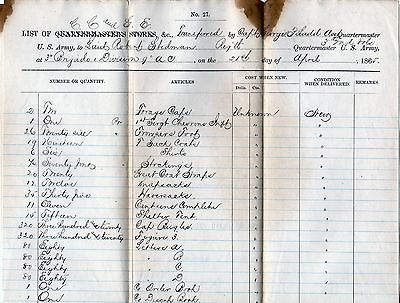 No. 27.
C C and G E
LIST OF QUARTERMASTER'S STORES, &c., Transferred by Capt George Quartermaster
U. S. Army, to Lieut Robert Stedman Quartermaster U. S. Army,
at 3d Brigade 1 Division 9" A C on the 21st day of April, 1865.
NUMBER OR QUANTITY. ARTICLES COST WHEN NEW. CONDITION WHEN DELIVERED. REMARKS.
2 Two Forage Caps Unknown New
1 One Pr 1st Sergt Chevrons Inft
26 Twenty six " Trowsers Foot
19 Nineteen " Sack Coats
6 Six " Shirts
4 " Stockings
20 Twenty Great Coat Straps
12 Twelve Knapsacks
35 Thirty five Haversacks
11 Eleven Canteens Complete
15 Fifteen Shelter Tent
320 Three hundred & twenty Cap Bugles
320 Three hundred & twenty Figures 3
80 Eighty Letters A
80 Eighty " B
80 Eighty " C
80 Eighty " D
1 One Co Order Book
1 One Co Book